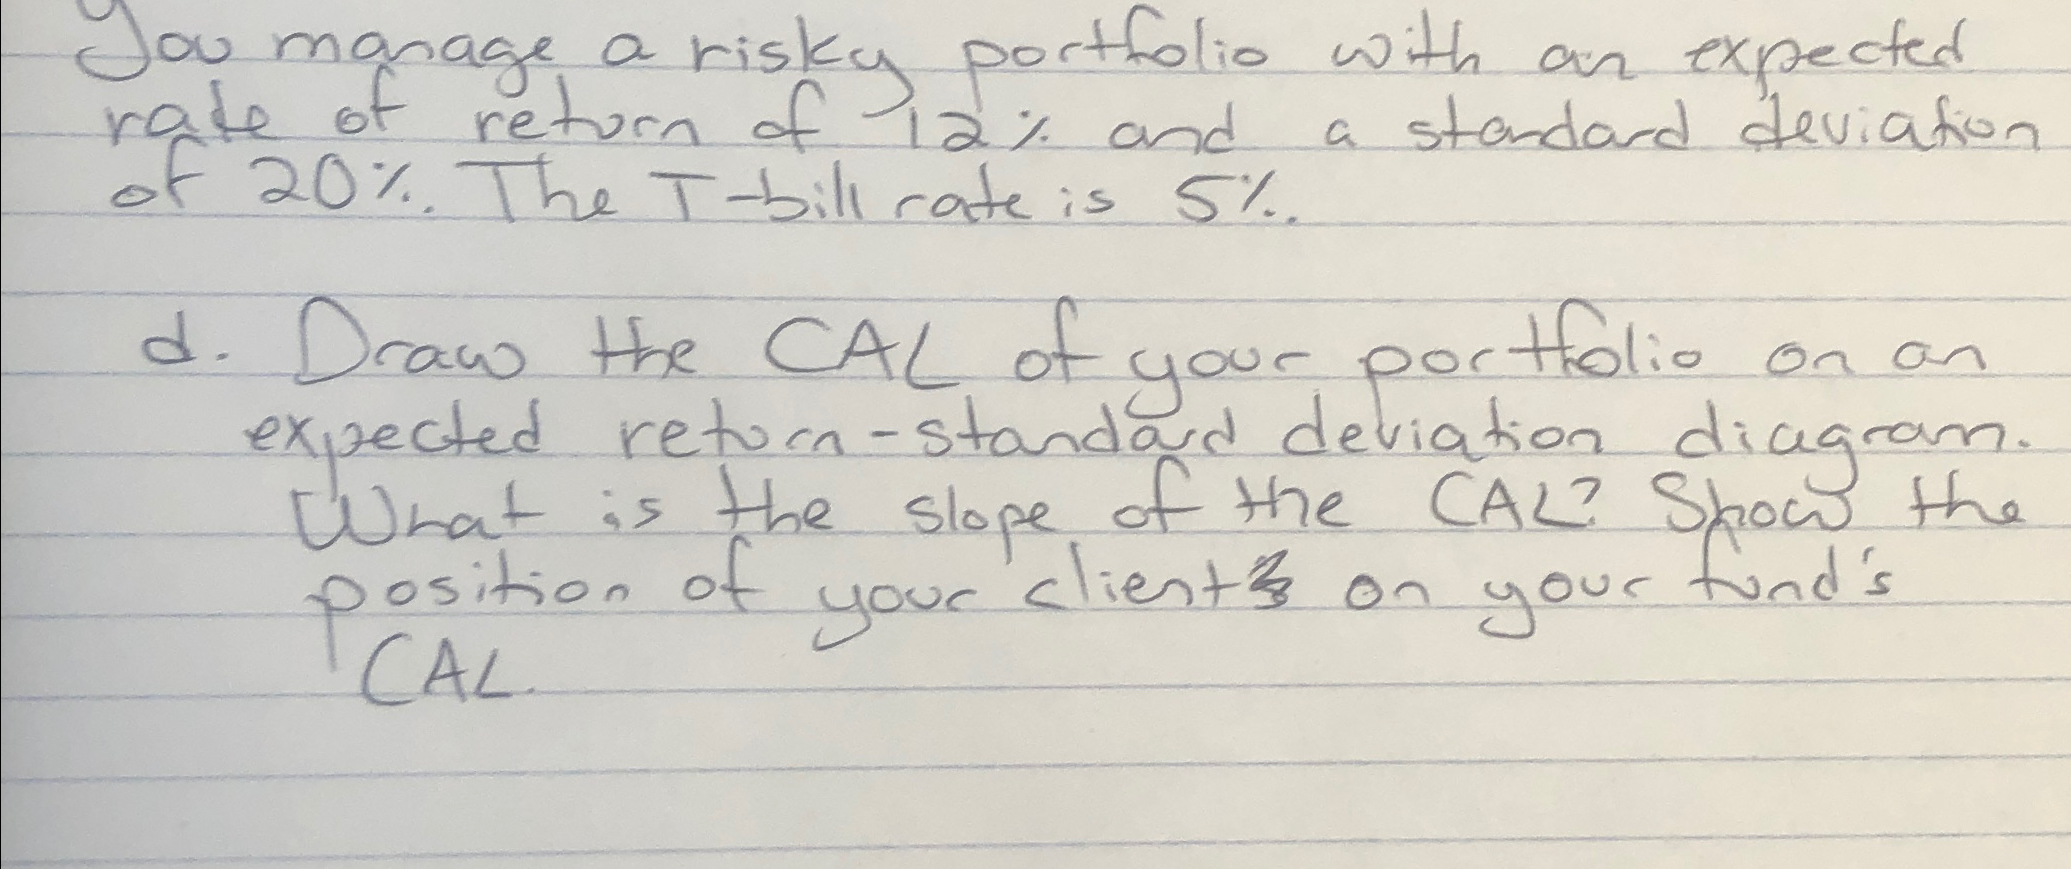 You manage a risky portfolio with an expected
rate of return of 12% and a standard deviation
of 20%. The T-bill rate is 5%.
d. Draw the CAL of your portfolio on an
expected return-standard deviation diagram.
What is the slope of the CAL? Show the
position of your client on your fund's
CAL.